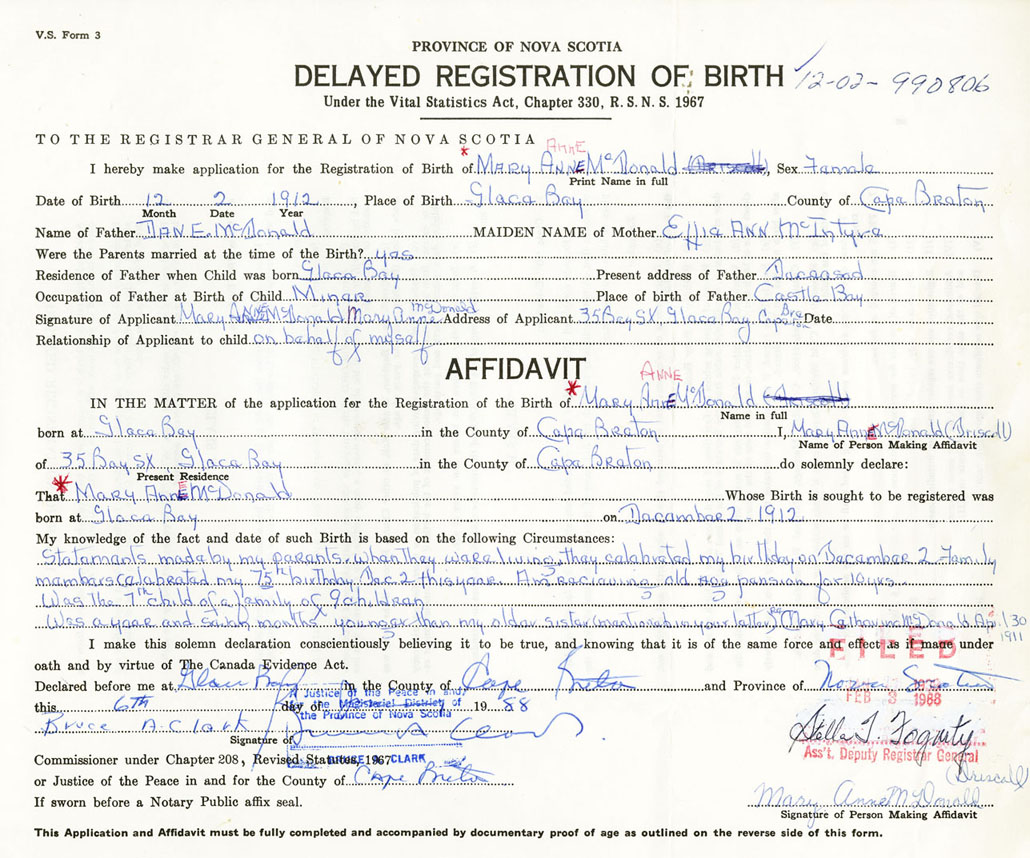 V.S. Form 3
PROVINCE OF NOVA SCOTIA
DELAYED REGISTRATION OF BIRTH
12-02-990806
Under the Vital Statistics Act, Chapter 330, R.S.N.S. 1967
TO THE REGISTRAR GENERAL OF NOVA SCOTIA
ANNE
I hereby make application for the Registration of Birth of * MARY ANNE McDonald (Driscoll), Sex Female
Print Name in full
Date of Birth 12 2 1912, Place of Birth Glace Bay County of Cape Breton
Month Date Year
Name of Father DAN E. McDonald MAIDEN NAME of Mother Effie ANN McIntyre
Were the Parents married at the time of the Birth? yes
Residence of Father when Child was born Glace Bay Present address of Father Deceased
Occupation of Father at Birth of Child Miner Place of birth of Father Castle Bay
Signature of Applicant Mary ANNE McDonald Mary Anne McDonald Address of Applicant 35 Bay St, Glace Bay Cape Breton Date
Relationship of Applicant to child on behalf of myself
AFFIDAVIT
ANNE
IN THE MATTER of the application for the Registration of the Birth of * Mary AnnE McDonald (Driscoll)
Name in full
born at Glace Bay in the County of Cape Breton I, Mary AnnE McDonald (Driscoll)
Name of Person Making Affidavit
of 35 Bay St, Glace Bay in the County of Cape Breton do solemnly declare:
Present Residence
That * Mary AnnE McDonald Whose Birth is sought to be registered was
born at Glace Bay on December 2 - 1912
My knowledge of the fact and date of such Birth is based on the following Circumstances:
Statements made by my parents when they were living, they celebrated my birthday on December 2. Family
members celebrated my 75th birthday Dec. 2 this year. Am recieving old age pension for 10 yrs.
Was the 7th child of a family of 9 children
Was a year and seven months younger than my older sister (mentioned in your letter) re Mary Catherine McDonald Apr. 30 1911
I make this solemn declaration conscientiously believing it to be true, and knowing that it is of the same force and effect as if made under
oath and by virtue of The Canada Evidence Act.
FILED
Declared before me at Glace Bay in the County of Cape Breton and Province of Nova Scotia
A Justice of the Peace in and
FEB 3 1988
this 6th day of 1988
for the Magisterial District of
the Province of Nova Scotia
Bruce A. Clark
Signature of
Stella T. Fogarty
Ass't. Deputy Registrar General
Commissioner under Chapter 208, Revised Statutes, 1967
BRUCE CLARK
or Justice of the Peace in and for the County of Cape Breton
(Driscoll)
If sworn before a Notary Public affix seal.
Mary Anne McDonald
Signature of Person Making Affidavit
This Application and Affidavit must be fully completed and accompanied by documentary proof of age as outlined on the reverse side of this form.